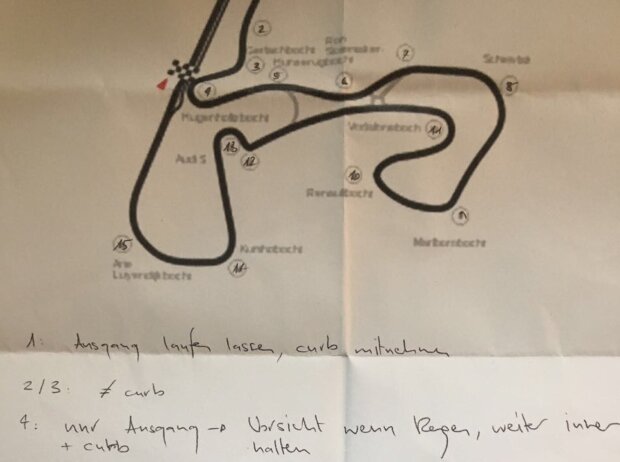 2
Gerlachbocht
3
5
Hunserugbocht
Rob
Slotemaker-
bocht
6
7
Scheivlak
8
4
Hugenholtzbocht
Audi S
13
12
11
10
Renaultbocht
9
Marlborobocht
15
Arie
Luyendijkbocht
Kumhobocht
14
1: Ausgang laufen lassen, curb mitnehmen
2/3: ≠ curb
4: nur Ausgang → Vorsicht wenn Regen, weiter innen
+ curbb halten